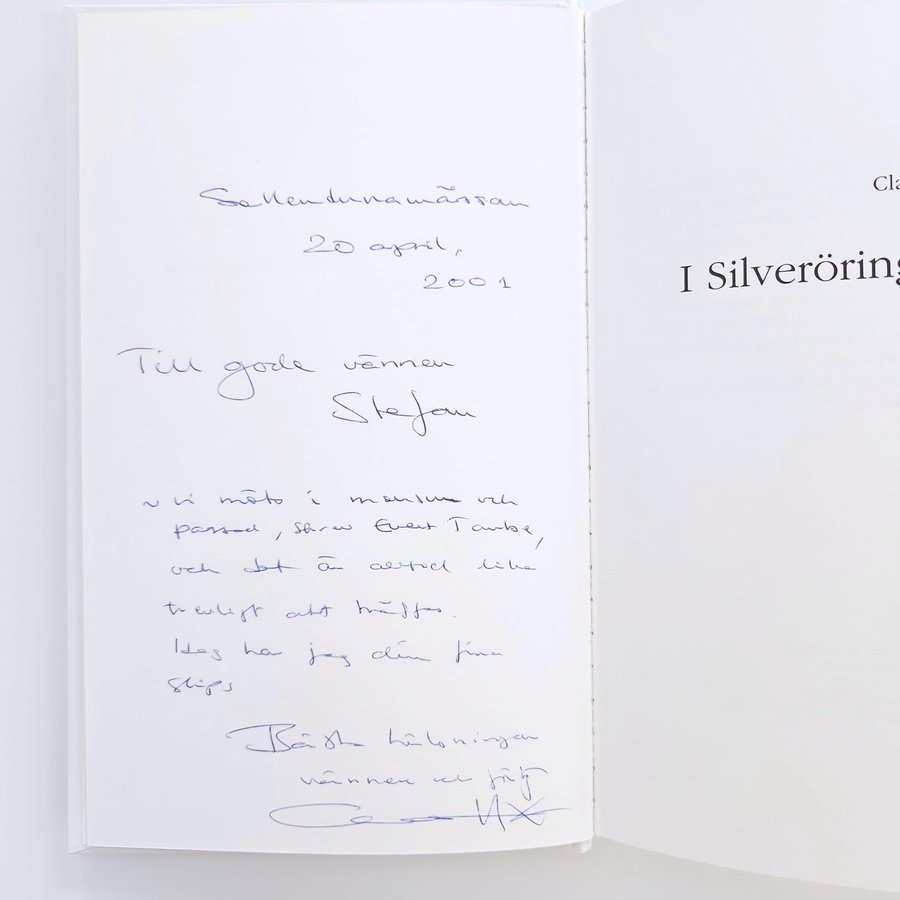 Sollentunamässan
20 april,
2001
Till gode vännen
Stefan
~ vi möts i monsun och
passad, skrev Evert Taube,
och det är alltid lika
trevligt att träffas.
Idag har jag din fina
slips
Bästa hälsningen
vännen och
Cla
I Silveröring